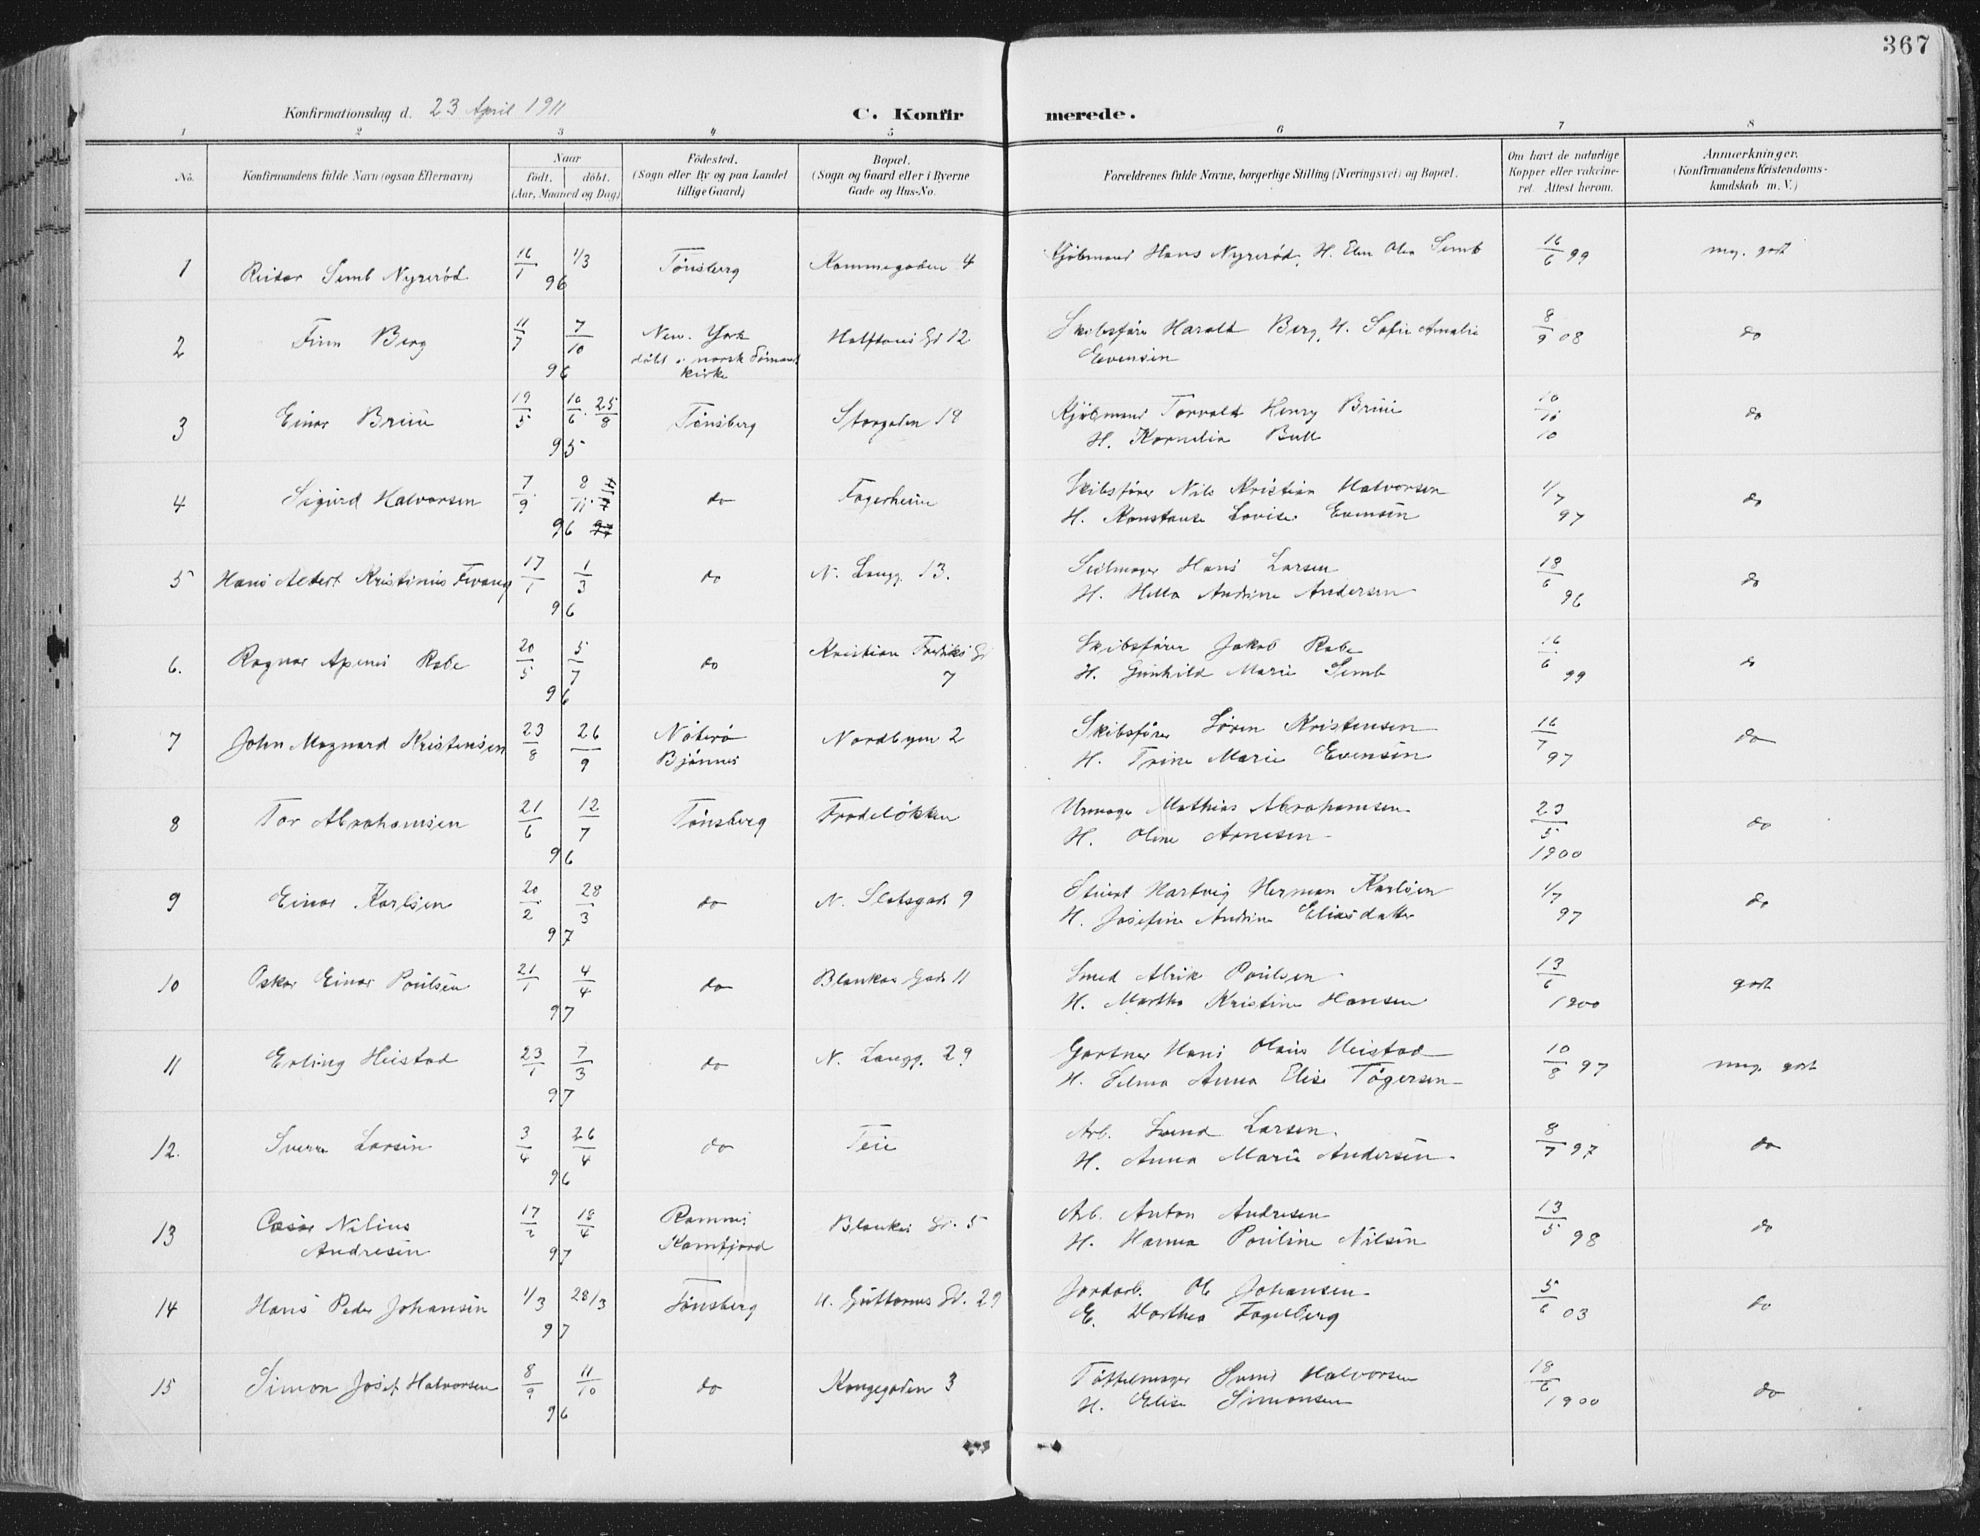 367
Konfirmationsdag d. 23 April 1911
C. Konfir merede.
1 2 3 4 5 6 7 8
No. Konfirmandens fulde Navn (ogsaa Efternavn) Naar födt. döbt. (Aar, Maaned og Dag) Födested. (Sogn eller By og paa Landet tillige Gaard) Bopæl. (Sogn og Gaard eller i Byerne Gade og Hus-No. Forældrenes fulde Navne, borgerlige Stilling (Næringsvei) og Bopæl. Om havt de naturlige Kopper eller vakcineret. Attest herom. Anmærkninger. (Konfirmandens Kristendomskundskab m. V.)
1 Reidar Semb Nyrerød 16/1 1/3 96 Tönsberg Kammegaden 4 Kjöbmand Hans Nyrerød, H. Olea Semb 16/6 99 meg. godt
2 Finn Berg 11/7 7/10 96 New. York döbt i norsk Sömands kirke Halfdans Gd 12 Skibsförer Harald Berg, H. Sofie Amalie
Evensen 8/9 08 do
3 Einar Bruu 19/5 16/6 25/8 95 Tönsberg Storgaden 19 Kjöbmand Torvald Henry Bruu
H. Kornelia Bull 10/10 10 do
4 Sigurd Halvorsen 7/9 8/11 96 do Fagerheim Skibsförer Nils Kristian Halvorsen
H. Konstanse Lovise Evensen 1/7 97 do
5 Hans Albert Kristinius Fevang 17/1 1/3 96 do N. Langg. 13. Seilmager Hans Larsen
H. Hella Andrine Andersen 18/6 96 do
6. Ragnar Apenes Rabe 20/5 5/7 96 do Kristian Fredriks Gd 7 Skibsförer Jakob Rabe
H. Gunhild Marie Semb 16/6 99 do
7 John Magnard Kristensen 23/8 26/9 Nöterö Bjönnes Nordbyen 2 Skibsförer Sören Kristensen
H. Trine Marie Evensen 16/7 97 do
8 Tor Abrahamsen 21/6 12/7 96 Tönsberg Frodeløkken Urmager Mathias Abrahamsen
H. Oline Arnesen 23/5 1900 do
9 Einar Karlsen 20/2 28/3 97 do N. Slotsgade 9 Stuert Hartvig Herman Karlsen
H. Josefine Andrine Eliasdatter 1/7 97 do
10 Oskar Einar Poulsen 21/1 4/4 97 do Blankas Gade 11 Smed Alrik Poulsen
H. Martha Kristine Hansen 13/6 1900 godt
11 Erling Heistad 23/1 7/3 97 do N. Langg. 29 Gartner Hans Olaus Heistad
H. Selma Anna Elise Tögersen 10/8 97 meg. godt
12. Sverre Larsen 3/4 26/4 96 do Teie Arb. Svend Larsen
H. Anna Marie Andersen 8/7 97 do
13 Nilius Andresen 17/2 18/4 97 Ramnes Blankas Gd. 5 Arb. Anton Andresen
H. Hanna Pouline Nilsen 13/5 98 do
14 Hans Peder Johansen 1/3 28/3 97 Tönsberg N. Guttorms Gd. 29 Jordarb. Ole Johansen
E. Dorthea Fagerberg 5/6 03 do
15 Simon Josef Halvorsen 8/9 11/10 96 do Kongegaden 3 Töffelmager Svend Halvorsen
H. Elise Simonsen 18/6 1900 do